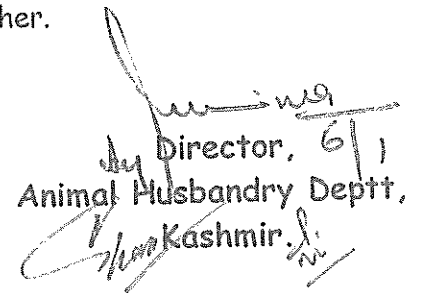 her.
6/1
Director,
Animal Husbandry Deptt,
Kashmir.